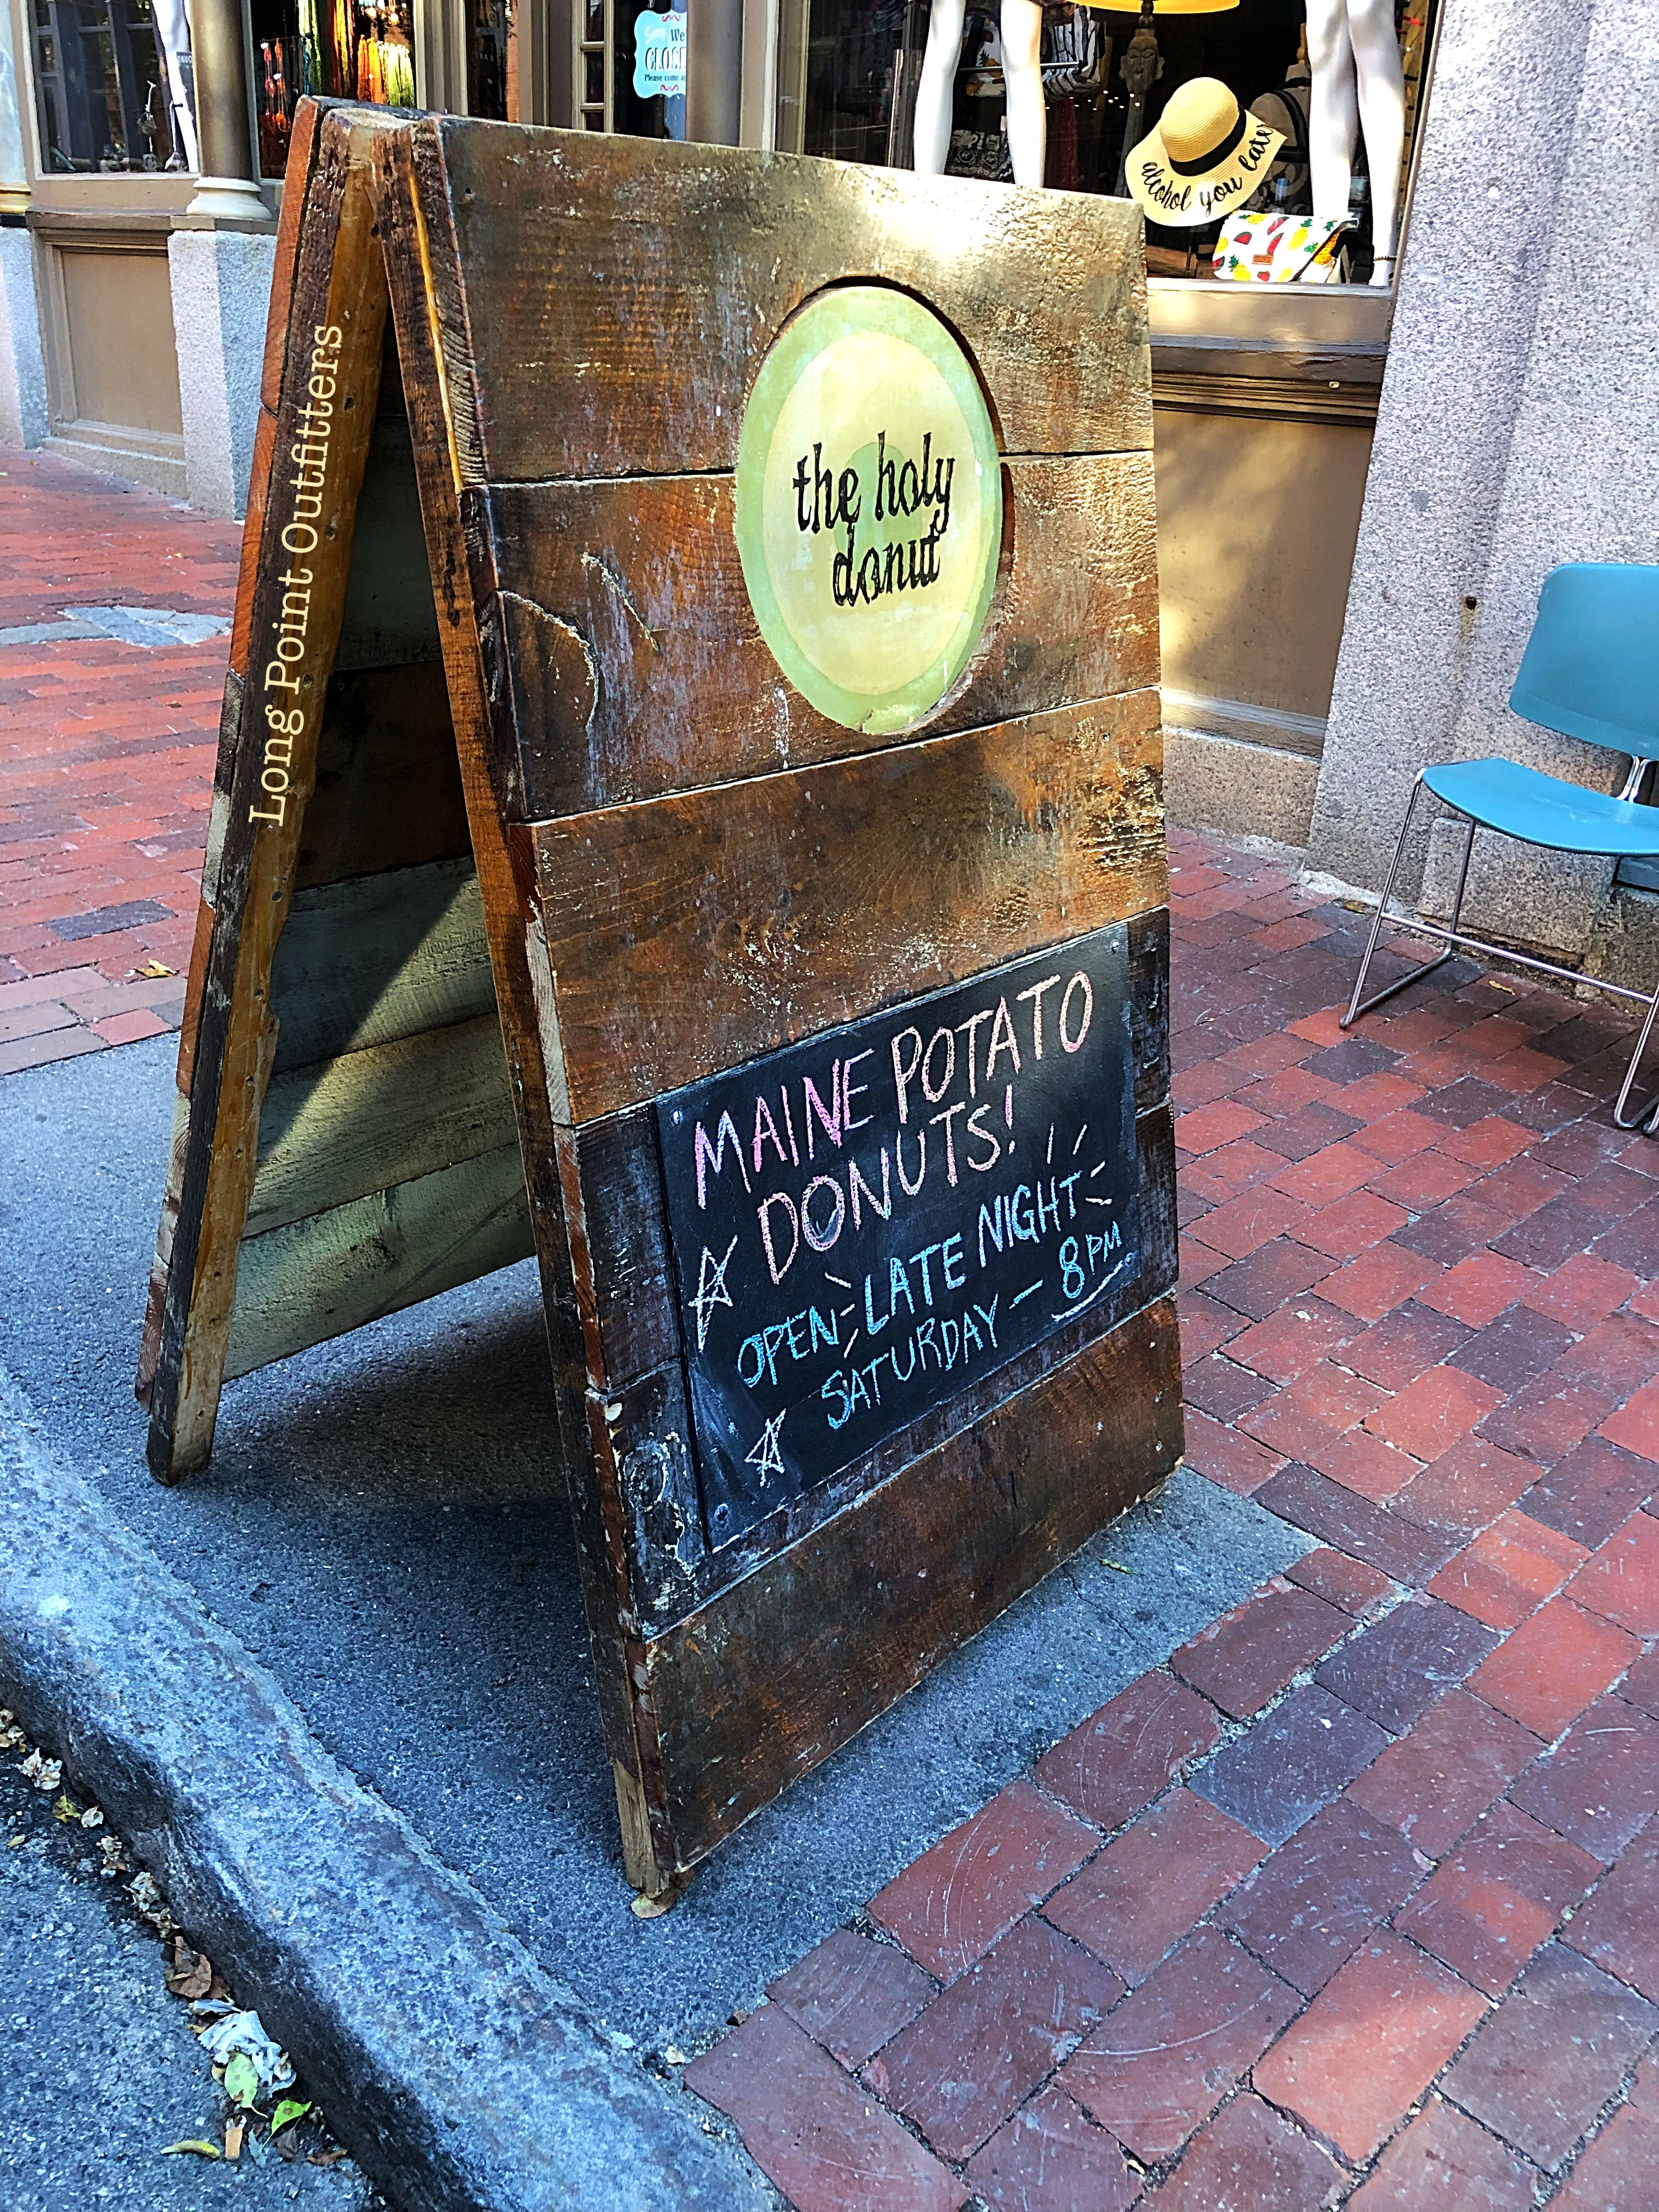 We
CLOSE
Please come a
alcohol you later
Long Point Outfitters
the holy
donut
MAINE POTATO
DONUTS!
OPEN LATE NIGHT
SATURDAY — 8PM